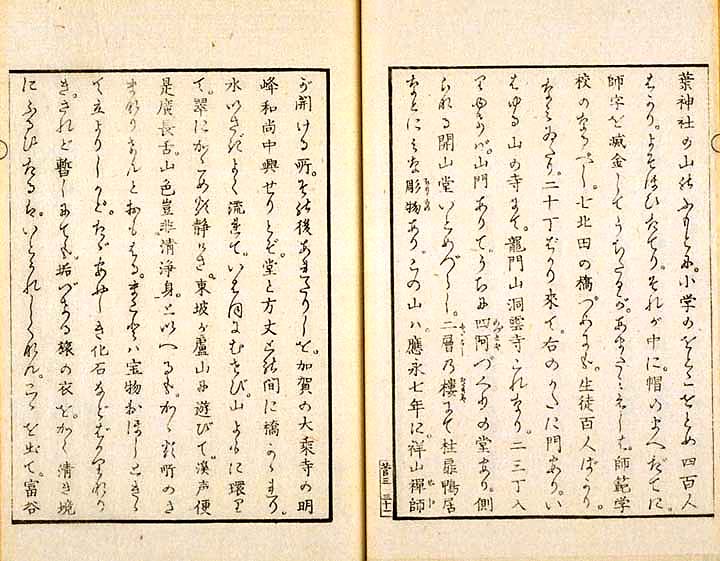 葉神社の山のふもとに。小学のをとこをとめ四百人
ばかり。よそほひたてり。それが中に。帽のまへだてに。
師字を滅金してうちたるが。あまたミえしハ。師範学
校のなるべし。七北田の橋づめにも。生徒百人ばかり。
なミゐたり。二十丁ばかり来て。右のかたに門あり。い
はゆる山の寺にて。龍門山洞雲寺これなり。二三丁入
りゆけバ。山門ありて。うちに四阿づくりの堂あり。側
なる開山堂いとめづらし。二層の楼にて柱扉鴨居
などにミな彫物あり。この山ハ。應永七年に。祥山禅師
菅三 三十一
が開ける所。その後あれたりしを。加賀の大乗寺の明
峰和尚中興せりとぞ。堂と方丈との間に橋かゝれり。
水いさぎよく流れて。いは間にむせび。山よもに環り
て。翠にかくめる静けさ。東坡が廬山に遊びて。渓声便
是廣長舌。山色豈非清浄身。といへるも。かゝる所のさ
まなりけんとおもはる。宝物おほし
て立よりしかど。たゞあやしき化石などばかりなりき。
されど暫しにても。垢づける旅の衣を。かく清き境
にふるひたるハ。いとうれしくなん。こゝを出て。富谷